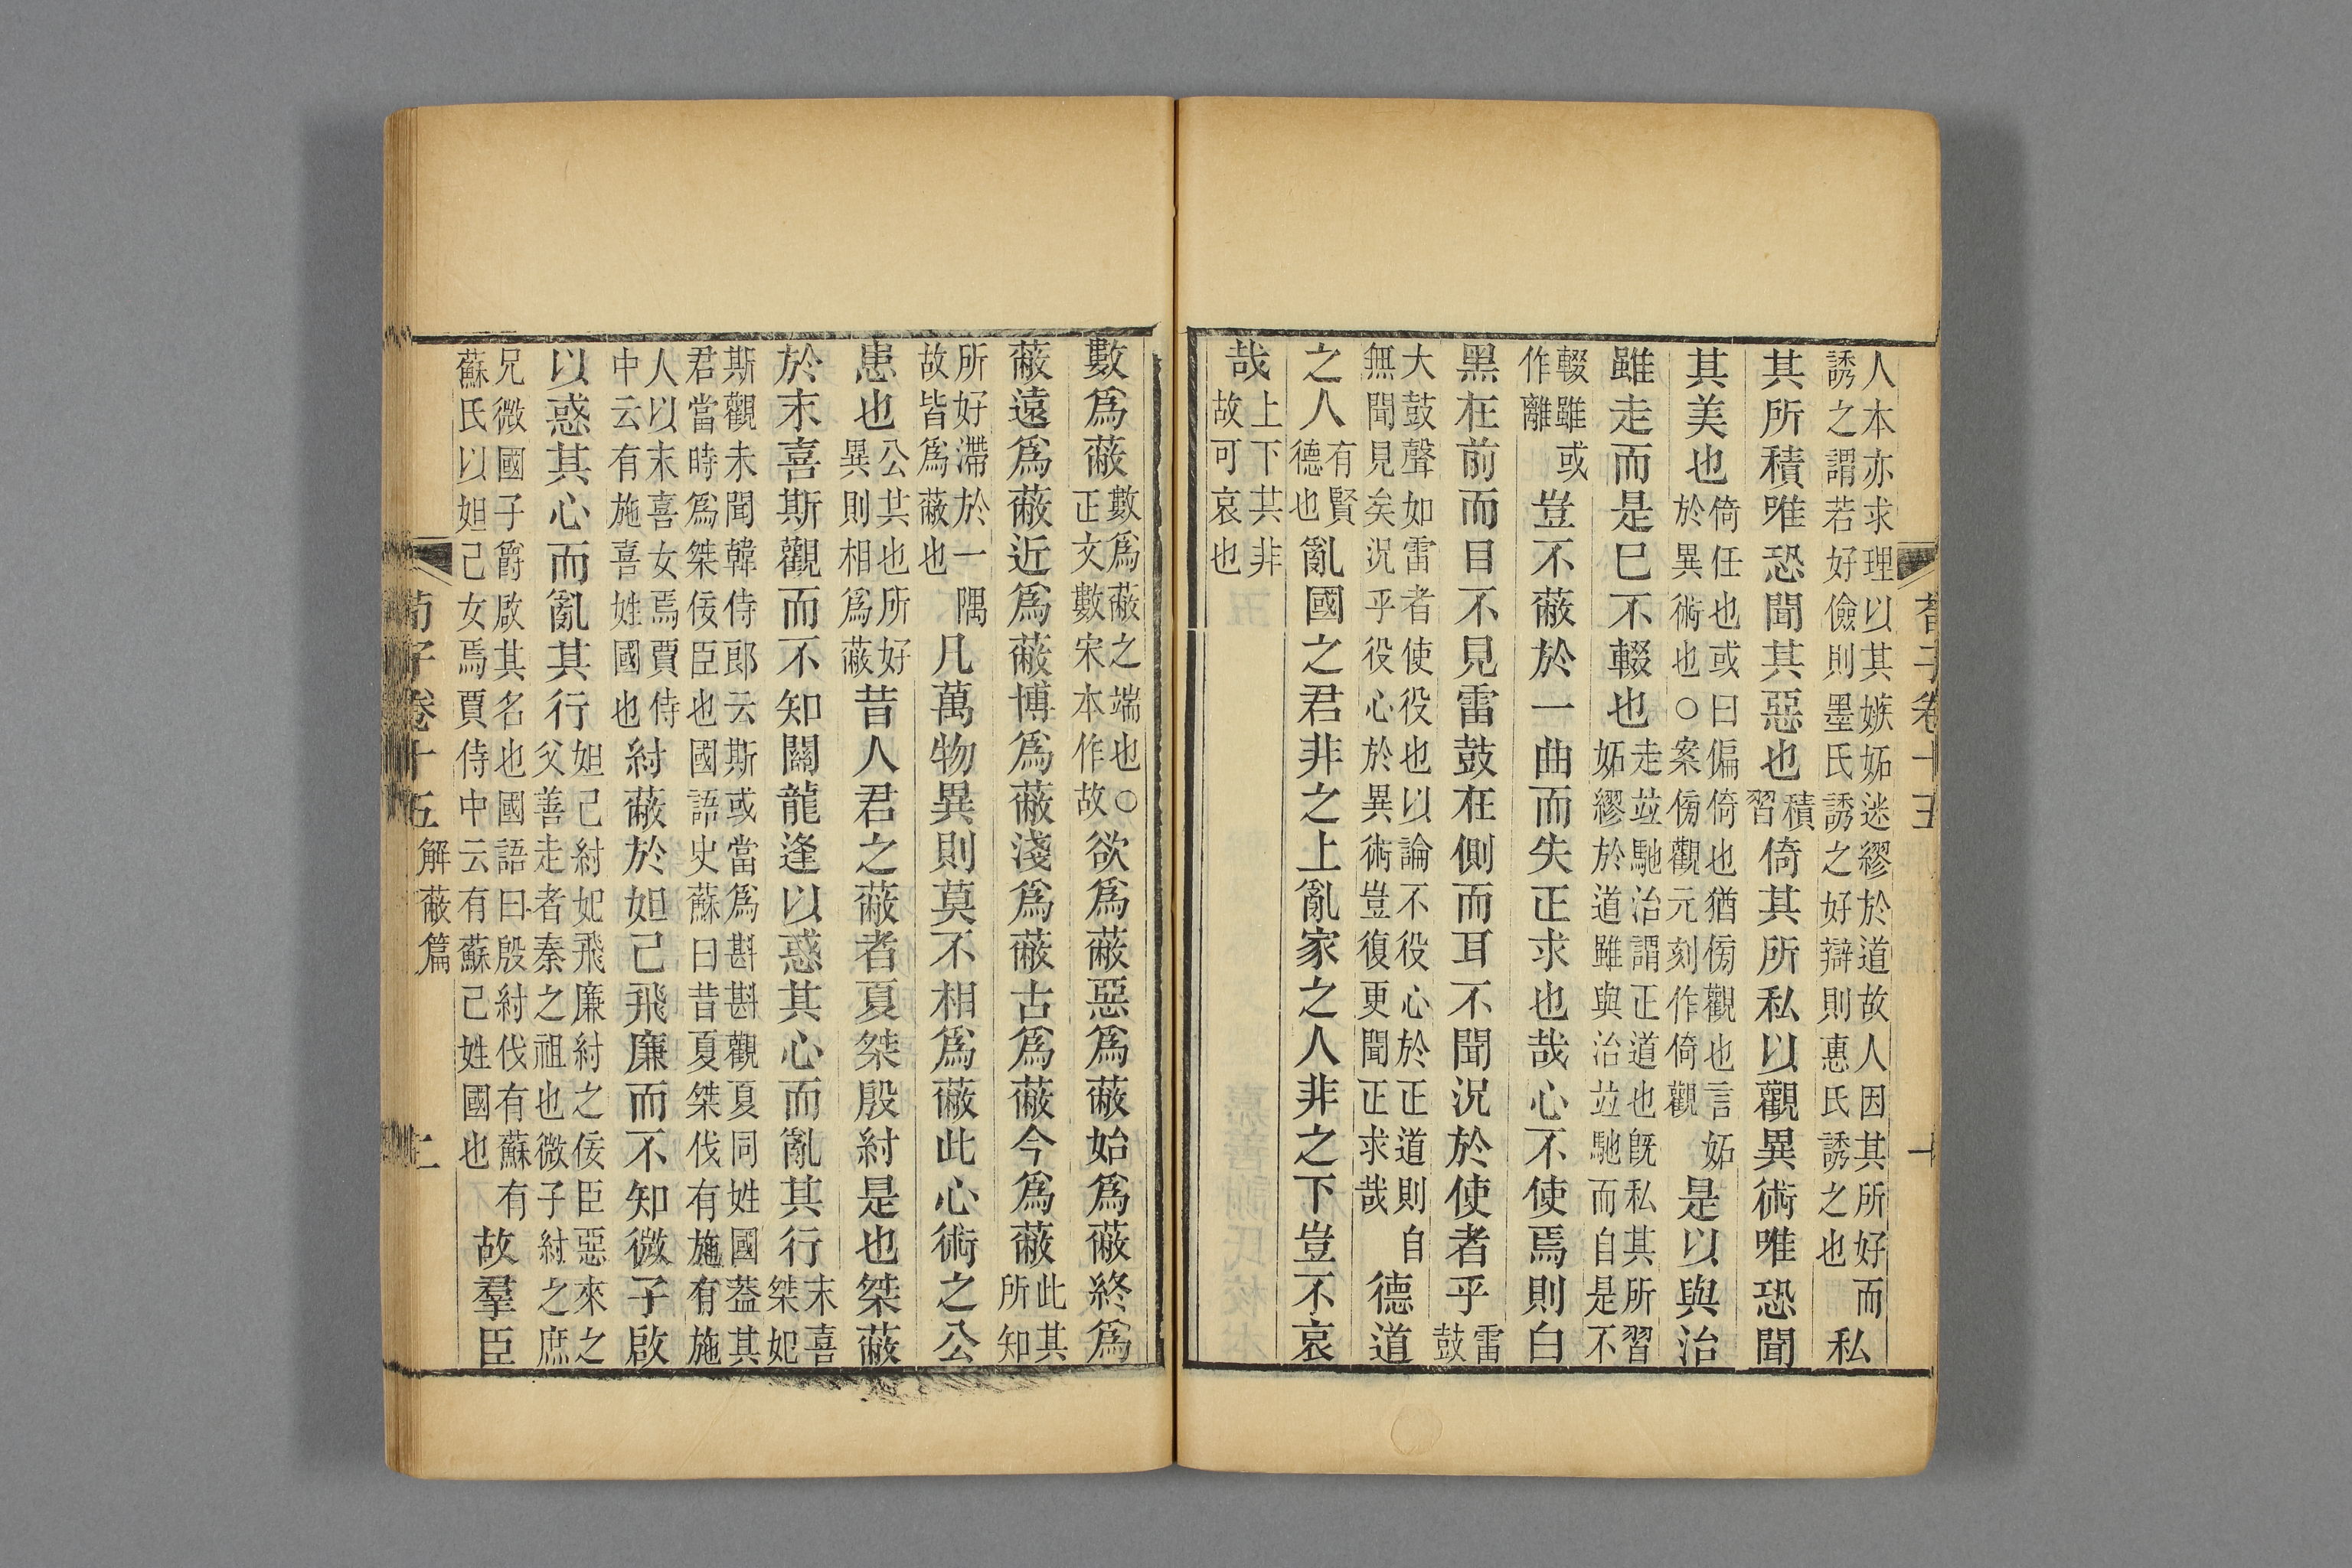 荀子卷十五
人本亦求理以其嫉妬迷繆於道故人因其所好而誘之謂若好儉則墨氏誘之好辯則惠氏誘之也私
其所積唯恐聞其惡也積習倚其所私以觀異術唯恐聞
其美也倚任也或曰偏倚也猶傍觀也言妬於異術也○案傍觀元刻作倚觀是以與治
雖走而是已不輟也走竝馳治謂正道也旣私其所習妬繆於道雖與治竝馳而自是不
輟雖或作離豈不蔽於一曲而失正求也哉心不使焉則白
黑在前而目不見雷鼓在側而耳不聞況於使者乎雷鼓
大鼓聲如雷者使役也以論不役心於正道則自無聞見矣況乎役心於異術豈復更聞正求哉德道
之人有賢德也亂國之君非之上亂家之人非之下豈不哀
哉上下共非故可哀也
數爲蔽數爲蔽之端也○正文數宋本作故欲爲蔽惡爲蔽始爲蔽終爲
蔽遠爲蔽近爲蔽博爲蔽淺爲蔽古爲蔽今爲蔽此其所知
所好滯於一隅故皆爲蔽也凡萬物異則莫不相爲蔽此心術之公
患也公共也所好異則相爲蔽昔人君之蔽者夏桀殷紂是也桀蔽
於末喜斯觀而不知關龍逢以惑其心而亂其行末喜桀妃
斯觀未聞韓侍郎云斯或當爲斟斟觀夏同姓國蓋其君當時爲桀佞臣也國語史蘇曰昔夏桀伐有施有施
人以末喜女焉賈侍中云有施喜姓國也紂蔽於妲己飛廉而不知微子啟
以惑其心而亂其行妲己紂妃飛廉紂之佞臣惡來之父善走者秦之祖也微子紂之庶
兄微國子爵啟其名也國語曰殷紂伐有蘇有蘇氏以妲己女焉賈侍中云有蘇己姓國也故羣臣
荀子卷十五 解蔽篇 二